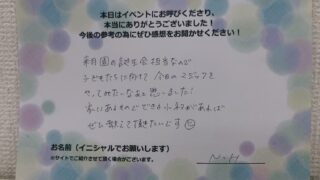 本日はイベントにお呼びくださり、
本当にありがとうございました！
今後の参考の為にぜひ感想をお聞かせください！
来月園の誕生会担当なので
子どもたちに向けて 今日のコラボを
やってみたいなぁと思いました！
家にあるものでできる小ネタがあれば
ぜひ教えて頂きたいです
お名前（イニシャルでお願いします）
※サイトでご紹介させて頂く場合がございます。
N.H